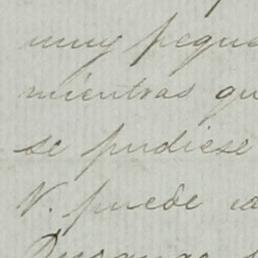 muy peque
mientras qu
se pudiese
V. puede
Durango